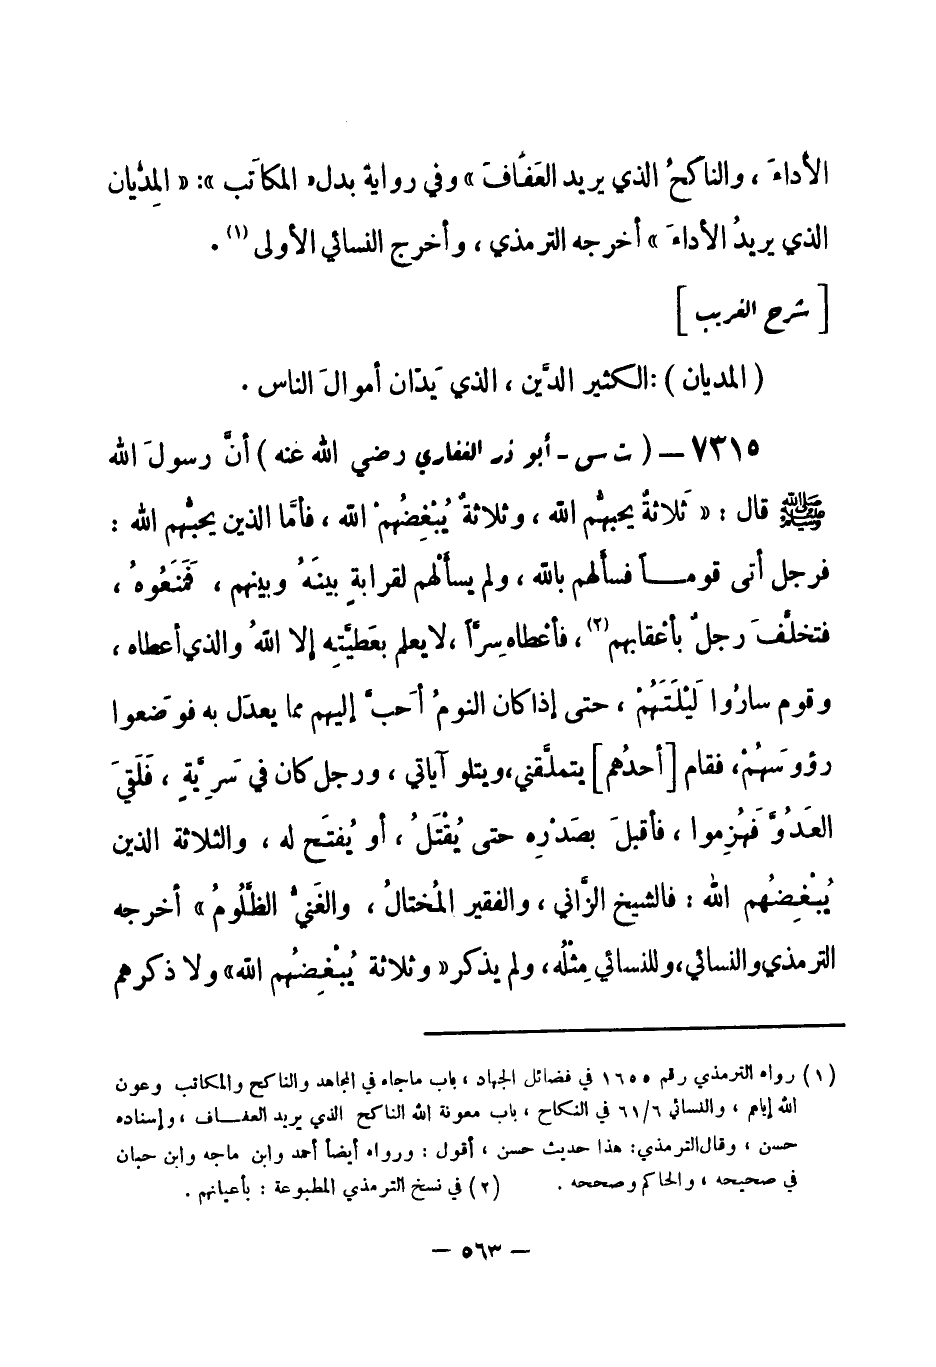 الأداءَ ، والناكحُ الذي يريد العَفَافَ » وفي رواية بدل« المكاتَب »: « المِدْيان
الذي يريدُ الأداءَ » أخرجه الترمذي ، وأخرج النسائي الأولى (١) .
[ شرح الغريب ]
( المديان ) :الكثير الدَّين ، الذي يَدّان أموالَ الناس .
٧٣١٥ – ( ت س - أبو ذر الغفاري رضي الله عنه ) أنَّ رسولَ الله
ﷺ قال : « ثَلاثةٌ يحبهُّم الله ، وثلاثةٌ يُبْغِضُهمْ الله ، فأمَّا الذين يحبُّهم الله :
فرجل أتى قومـــاً فسألهم بالله ، ولم يسألْهم لقرابةٍ بينَهُ وبينهم ، فَمَنَعُوهُ ،
فتخلَّفَ رجلٌ بأعْقابهم(٢) ، فأعْطاه سِرَّاً ،لا يعلم بعَطيَّتِه إلا اللهُ والذي أعطاه ،
وقوم سارُوا لَيْلَتَهُمْ ، حتى إذا كان النومُ أَحبَّ إليهم مما يعدَل به فوَضعوا
رؤوسَهُمْ، فقام [أحدُهم] يتملَّقني،ويتلو آياتي ، ورجل كان في سَرِيَّةٍ ، فَلَقِيَ
العَدُوَّ فَهُزِموا ، فأقبلَ بصَدْرِه حتى يُقْتَلُ ، أو يُفتَح له ، والثلاثة الذين
يُبْغِضُهم الله : فالشيخ الزَّاني ، والفقير المُختالُ ، والغَنيُّ الظَّلُومُ » أخرجه
الترمذي والنسائي،وللنسائي مِثْلُه، ولم يذكر « وثلاثة يُبْغِضُهم الله» ولا ذكرهم
(١) رواه الترمذي رقم ١٦٥٥ في فضائل الجهاد ، باب ماجاء في المجاهد والناكح والمكاتب وعون
الله إياهم ، والنسائي ٦١/٦ في النكاح ، باب معونة الله الناكح الذي يريد العفـــاف ، وإسناده
حسن ، وقال الترمذي: هذا حديث حسن ، أقول : ورواه أيضاً أحمد وابن ماجه وابن حبان
في صحيحه ، والحاكم وصححه . (٢) في نسخ الترمذي المطبوعة : بأعيانهم .
– ٥٦٣ –